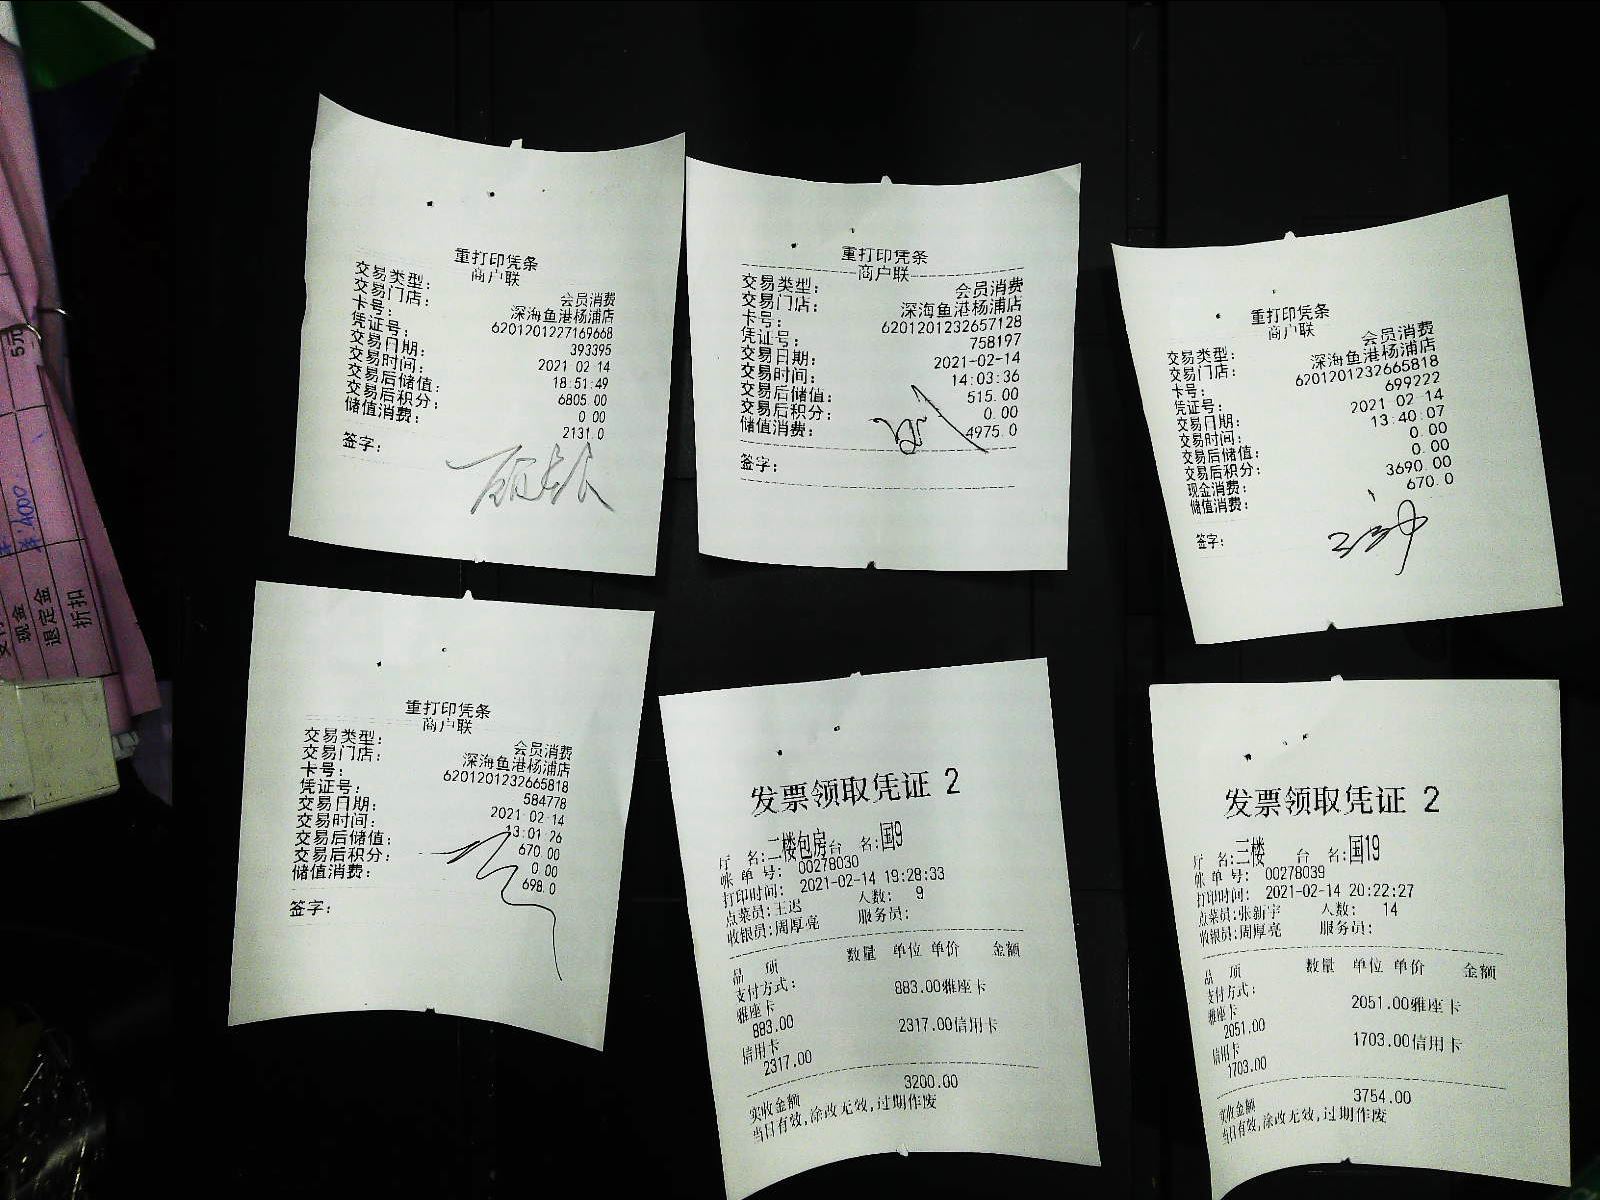 重打印凭条
商户联
交易类型: 会员消费
交易门店: 深海鱼港杨浦店
卡号: 6201201227169668
凭证号: 393395
交易日期: 2021 02 14
交易时间: 18:51:49
交易后储值: 6805.00
交易后积分: 0 00
储值消费: 2131.0
签字:
重打印凭条
商户联
交易类型: 会员消费
交易门店: 深海鱼港杨浦店
卡号: 6201201232657128
凭证号: 758197
交易日期: 2021-02-14
交易时间: 14:03:36
交易后储值: 515.00
交易后积分: 0.00
储值消费: 4975.0
签字:
重打印凭条
商户联
交易类型: 会员消费
交易门店: 深海鱼港杨浦店
卡号: 6201201232665818
凭证号: 699222
交易日期: 2021-02-14
交易时间: 13:40:07
交易后储值: 0.00
交易后积分: 0.00
现金消费: 3690.00
储值消费: 670.0
签字:
重打印凭条
商户联
交易类型: 会员消费
交易门店: 深海鱼港杨浦店
卡号: 6201201232665818
凭证号: 584778
交易日期: 2021-02-14
交易时间: 13:01:26
交易后储值: 670.00
交易后积分: 0.00
储值消费: 698.0
签字:
发票领取凭证 2
厅 名:二楼包房 台 名:国9
帐 单 号: 00278030
打印时间: 2021-02-14 19:28:33
点菜员:王迟 人数: 9
收银员:周厚亮 服务员:
品 项 数量 单位 单价 金额
支付方式: 883.00雅座卡
雅座卡
883.00 2317.00信用卡
信用卡
2317.00
3200.00
实收金额
当日有效,涂改无效,过期作废
发票领取凭证 2
厅 名:三楼 台 名:国19
帐 单 号: 00278039
打印时间: 2021-02-14 20:22:27
点菜员:张新宇 人数: 14
收银员:周厚亮 服务员:
品 项 数量 单位 单价 金额
支付方式: 2051.00雅座卡
雅座卡
2051.00 1703.00信用卡
信用卡
1703.00
3754.00
实收金额
当日有效,涂改无效,过期作废
5元
¥400
现金
退定金
折扣